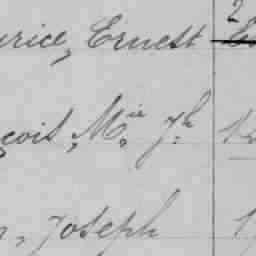 urice, Ernest 2
çois, M.ie J.h 1
n, Joseph 1